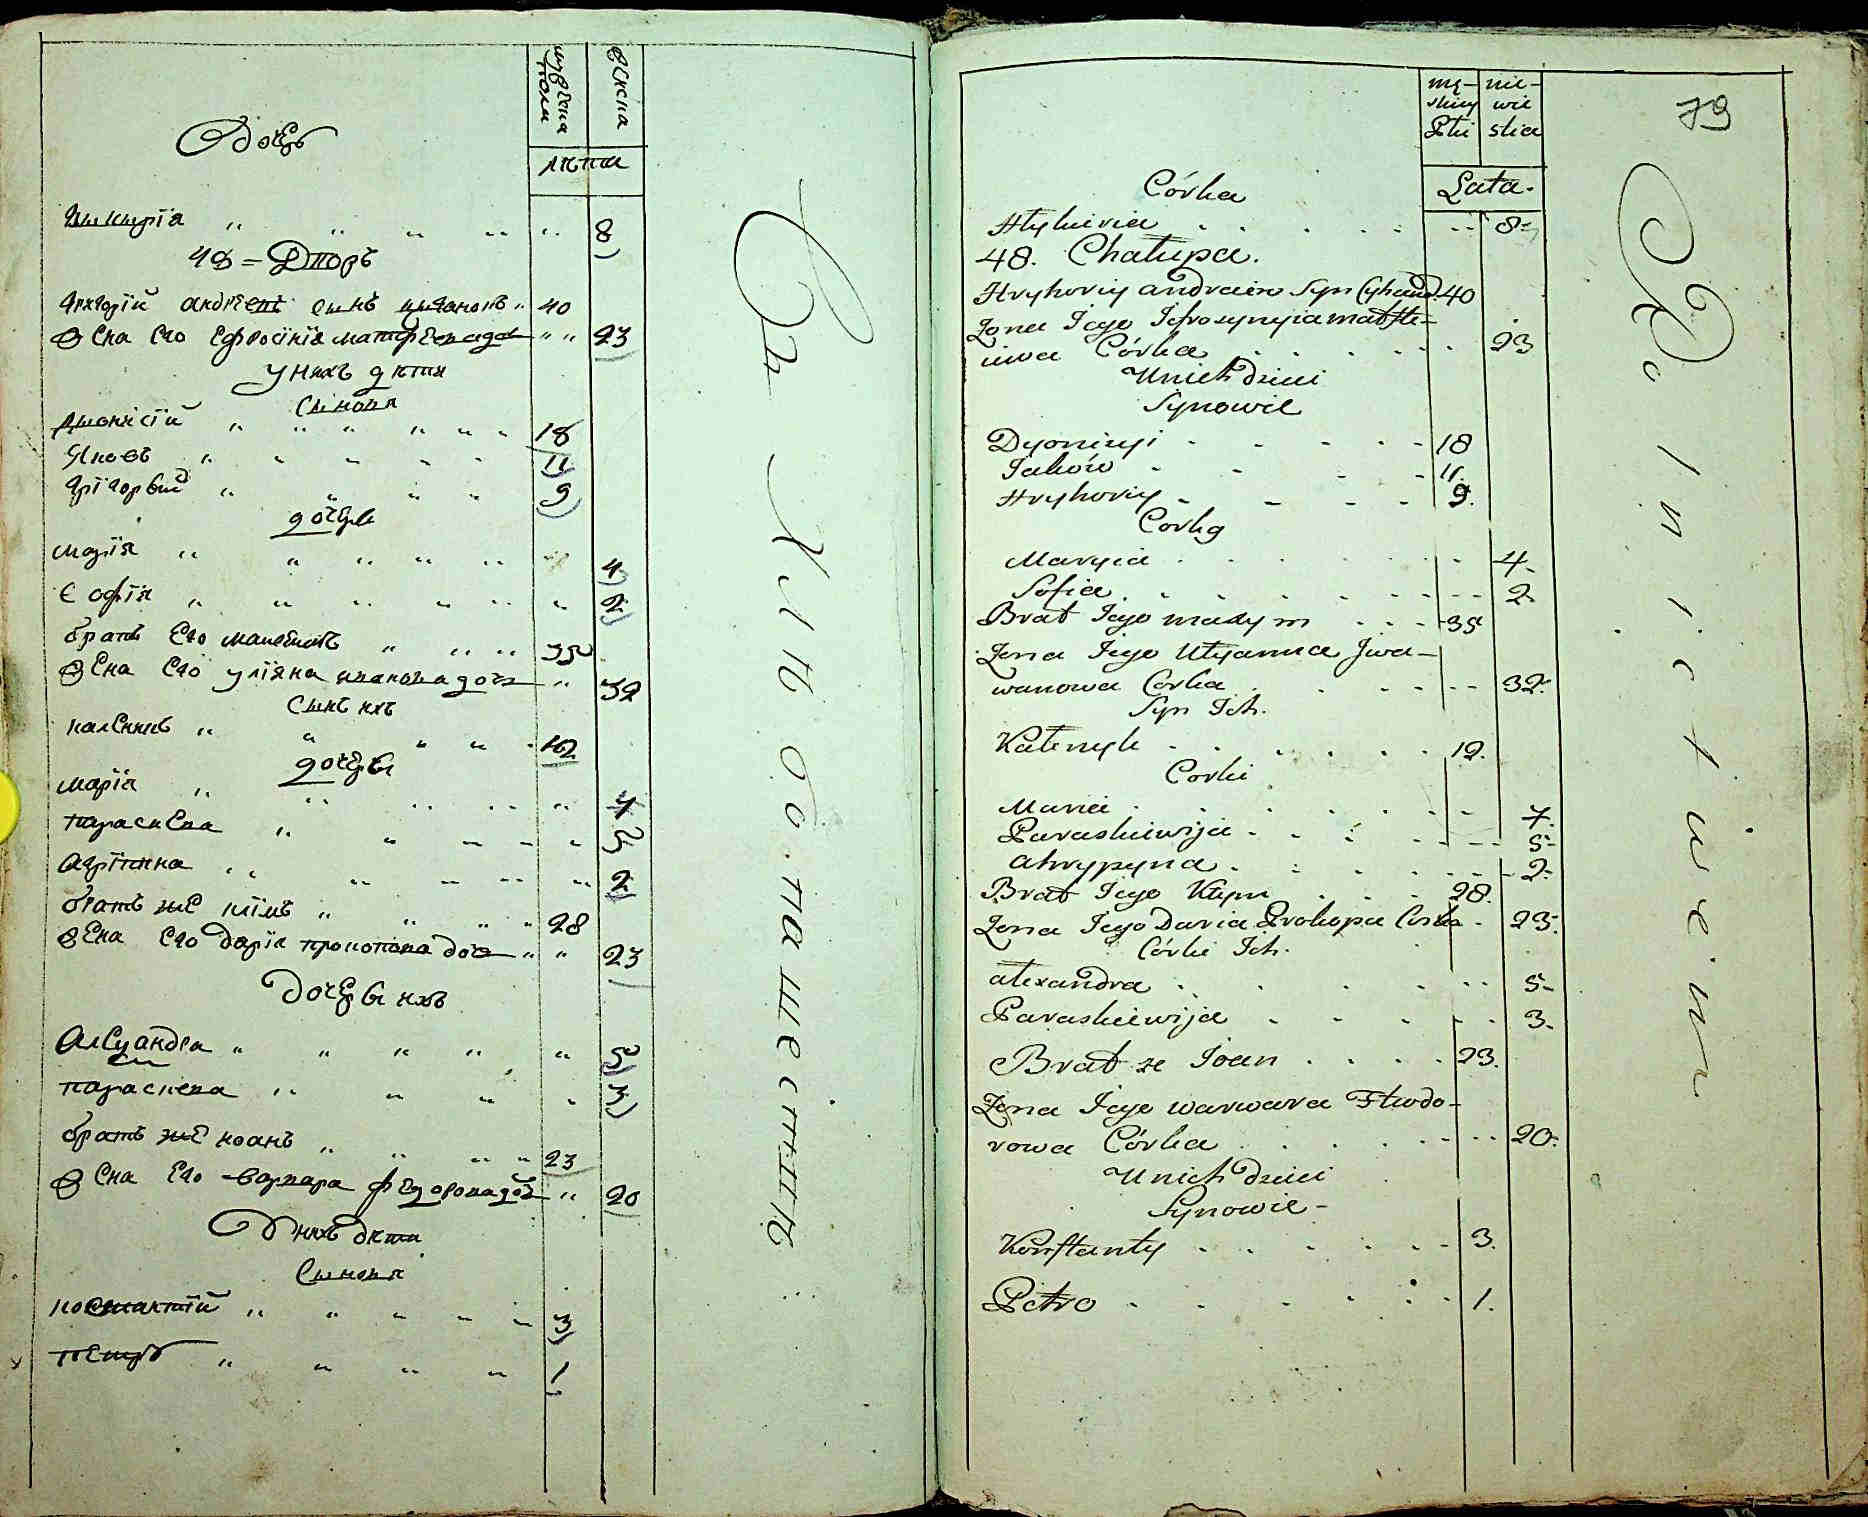 мужеска пола
женска
лѣта
Дочерь
Гликирїя 8
48 = Дворъ
Григорїй андрїевъ сынъ цыгановъ 40
Жена Его Ефросїнїя матфеева дочь 23
У нихъ дѣти
Сыновя
Дионисїй 18
Яковъ 11
Григорвий 9
дочерѣ
Марїя 4
Софїя 2
братъ Его 35
Жена Его улїяна иванова дочь 32
Сынъ ихъ
калєникъ 12
дочерѣ
марїа 7
параскева 5
Агрїпина 2
братъ же клїмъ 28
Жена Его дарїя прокопова дочь 23
Дочерѣ ихъ
Александра 5
параскева 3
братъ же иоанъ 23
Жена Его варвара федорова дочь 20
У нихъ дѣти
Сыновя
костантїй 3
петръ 1
Съ Хлѣбопашествѣ
męskiey Płci
niewiestia
79
Lata.
Córka
Hlykiria 8
48. Chałupa.
Hryhoriy andreiew Syn Cyhanow 40
Żona Jego Jefrosynyia matfie-
iewa Córka 23
U nich dzieci
Synowie
Dyonizyi 18
Jakow 11.
Hryhoriy 9.
Corky
Maryia 4.
Sofia 2.
Brat Jego 35
Żona Jego Ulyanna Jwa-
wanowa Corka 32.
Syn Ich.
Kalenyk 12.
Corki
Maria 7.
Paraskiewija 5
ahrypyna 2.
Brat Jego Klym 28.
Żona Jego Daria Prokopa Corka 23.
Córki Ich.
alexandra 5
Paraskiewija 3.
Brat że Joan 23.
Żona Jego warwara Fedo-
rowa Córka 20.
U nich dzieci
Synowie
Konstanty 3.
Petro 1.
Rolnictwem